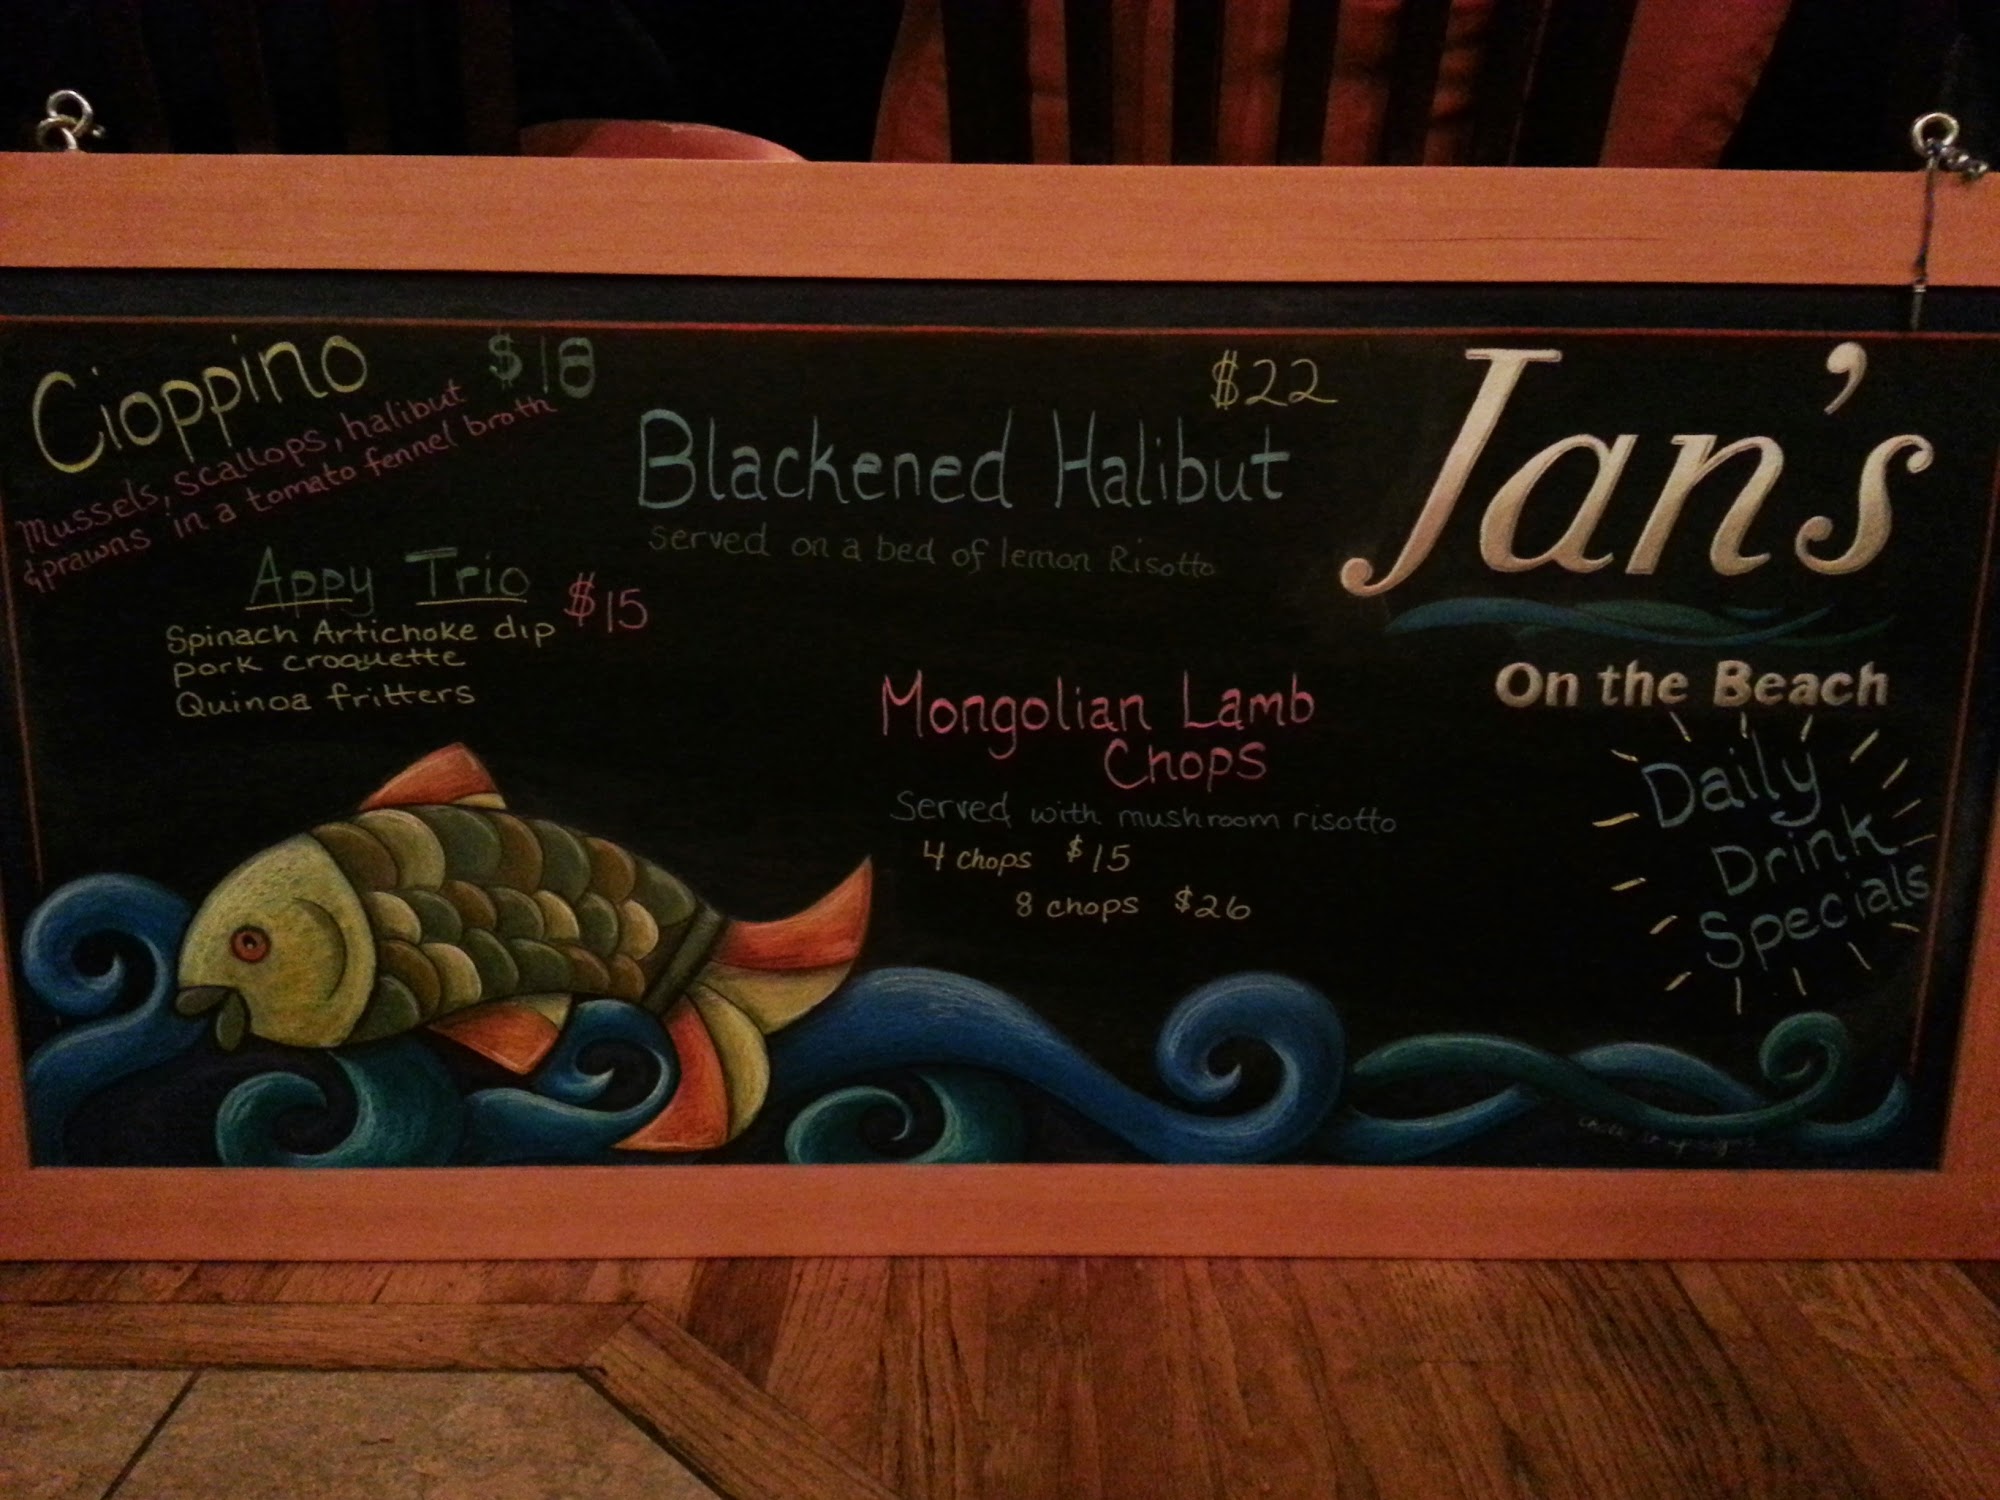 Cioppino $18
Mussels, scallops, halibut
& prawns in a tomato fennel broth
Appy Trio $15
Spinach Artichoke dip
pork croquette
Quinoa fritters
$22
Blackened Halibut
served on a bed of lemon Risotto
Mongolian Lamb
Chops
Served with mushroom risotto
4 chops $15
8 chops $26
Jan's
On the Beach
Daily
Drink
Specials